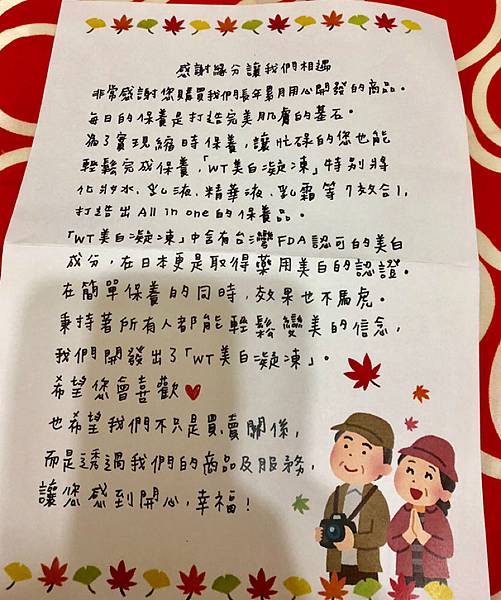 感謝緣分讓我們相遇
非常感謝您購買我們長年累月用心開發的商品。
每日的保養是打造完美肌膚的基石。
為了實現縮時保養，讓忙碌的您也能
輕鬆完成保養，「WT美白凝凍」特別將
化妝水、乳液、精華液、乳霜等7效合1，
打造出All in one的保養品。
「WT美白凝凍」中含有台灣FDA認可的美白
成分，在日本更是取得藥用美白的認證。
在簡單保養的同時，效果也不馬虎。
秉持著所有人都能輕鬆變美的信念，
我們開發出了「WT美白凝凍」。
希望您會喜歡♥
也希望我們不只是買賣關係，
而是透過我們的商品及服務，
讓您感到開心，幸福！